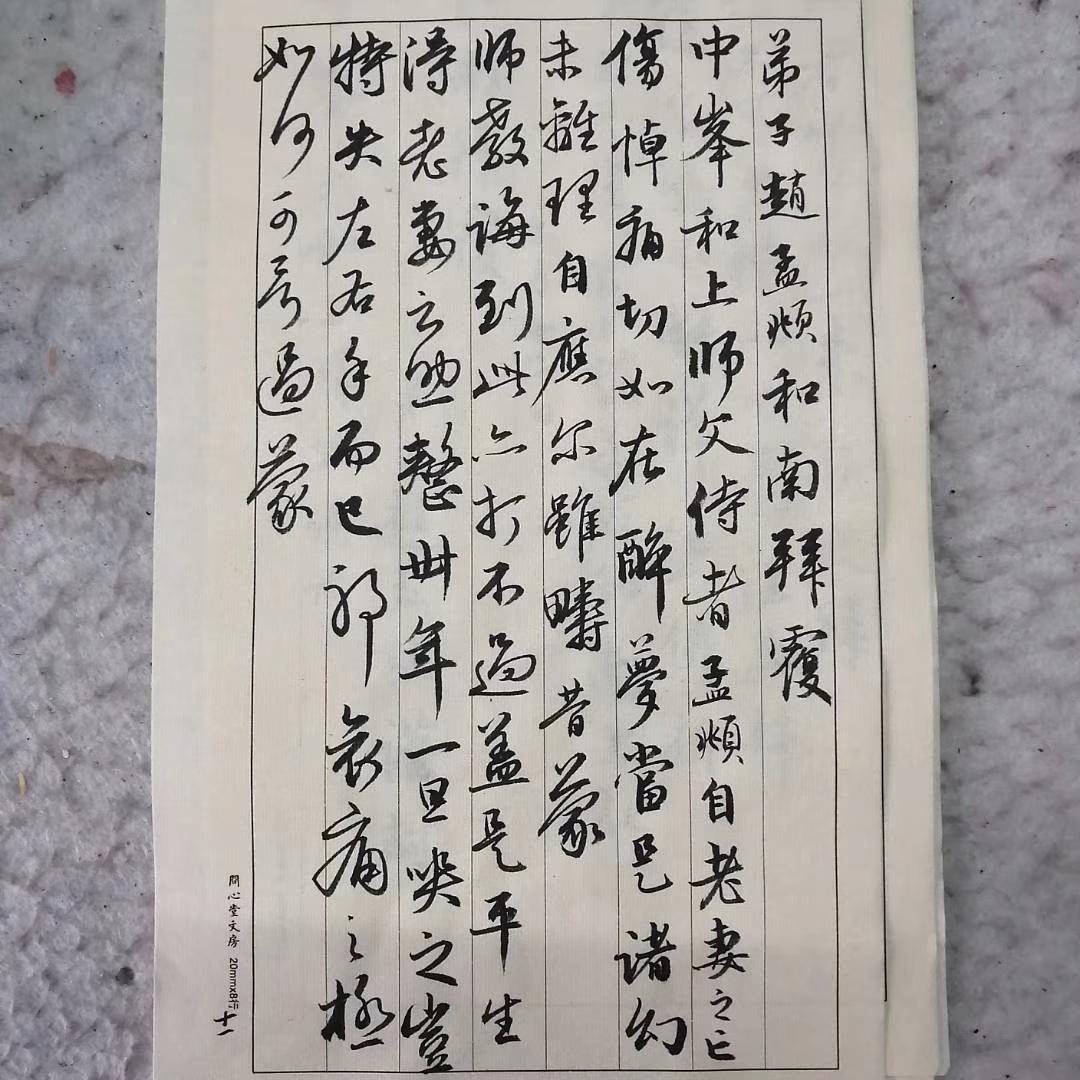 弟子趙孟頫和南拜覆
中峯和上師父侍者孟頫自老妻之亡
傷悼痛切如在醉夢當是諸幻
未離理自應尔雖疇昔蒙
師教誨到此亦打不過蓋是平生
得老妻之助整卅年一旦哭之豈
特失左右手而已耶哀痛之極
如何可言過蒙
問心堂文房 20mmx8行
十一